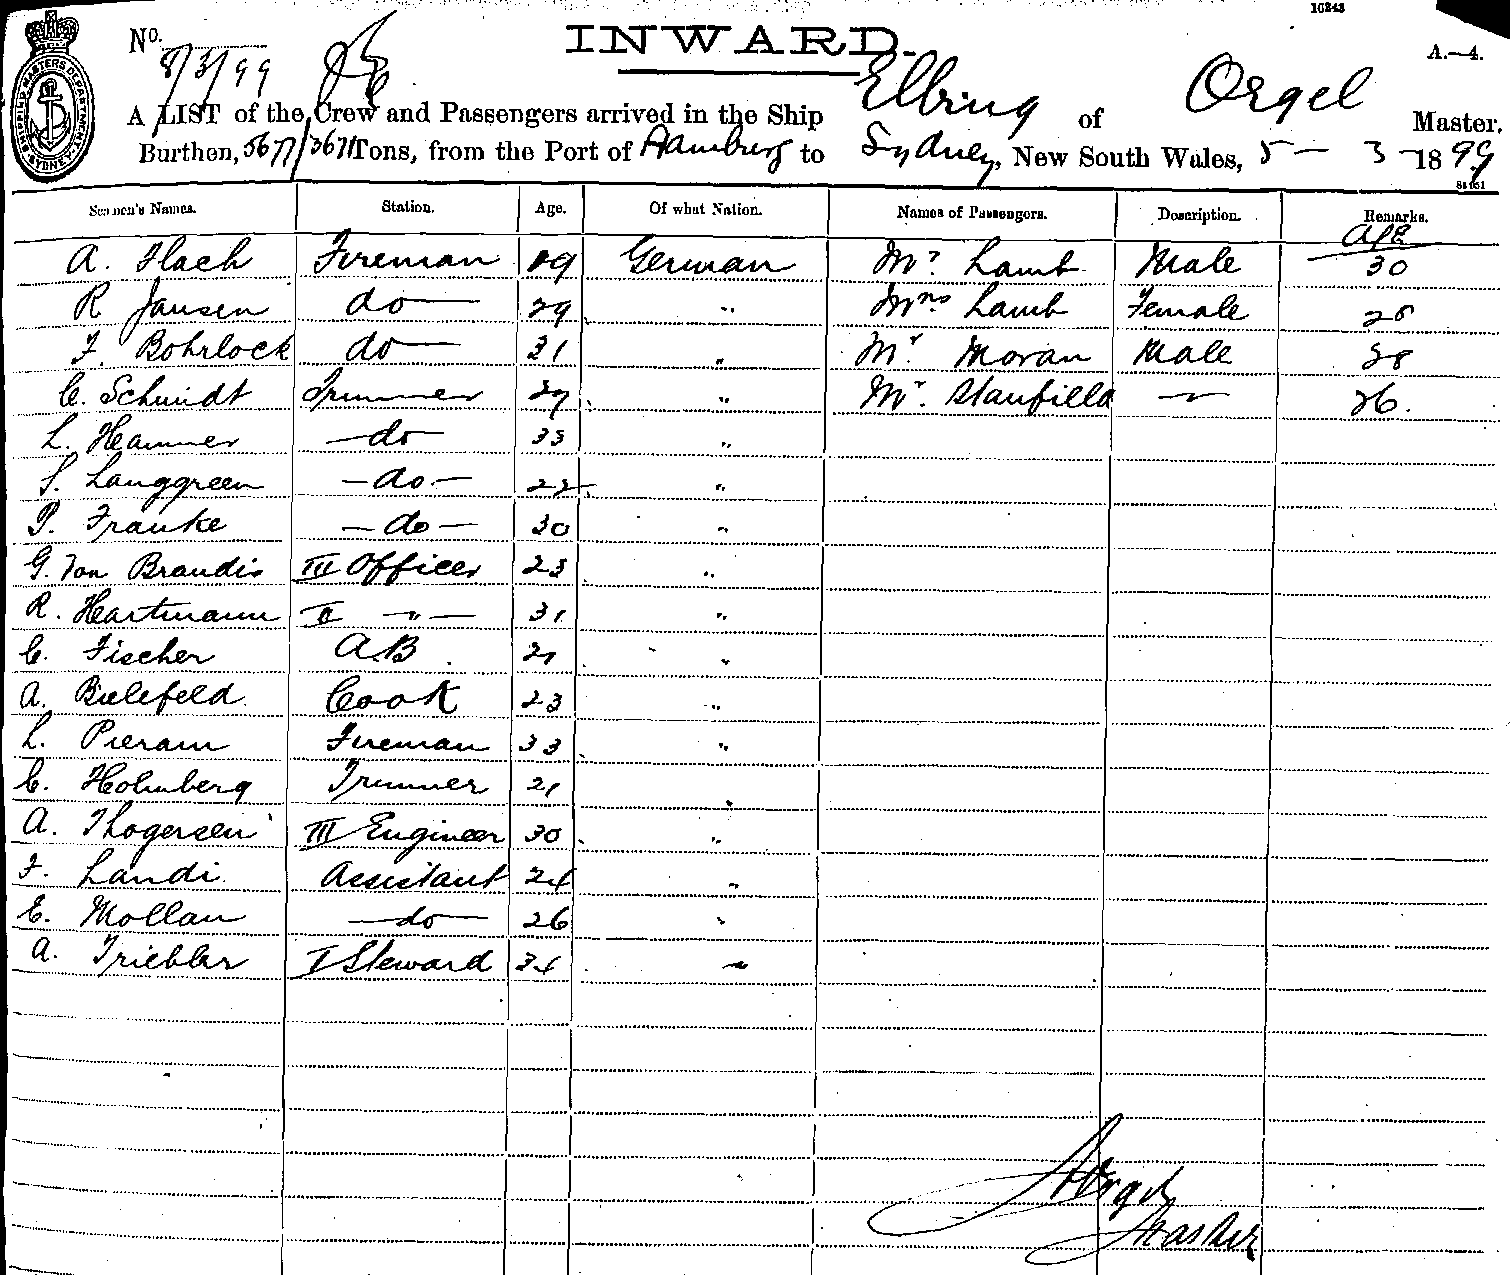 10243
No. 8/3/99
INWARD.
A.—4.
A LIST of the Crew and Passengers arrived in the Ship Elbing of Orgel Master,
Burthen, 5677/3671 Tons, from the Port of Hamburg to Sydney, New South Wales, 5 — 3 — 1899
Seamen's Names. Station. Age. Of what Nation. Names of Passengers. Description. Remarks.
Age
A. Flach Fireman 29 German Mr. Lamb Male 30
R Jansen do 29 " Mrs. Lamb Female 28
F. Bohrlock do 31 " Mr. Moran Male 28
C. Schmidt Trimmer 27 " Mr. Stanfield — " — 26.
L. Hammer —do— 33 "
S. Langgreen —do.— 22 "
P. Franke —do— 30 "
G. von Brandis III Officer 23 "
R. Hartmann II —"— 31 "
C. Fischer A.B. 21 "
A. Bielefeld Cook 23 "
L. Pieram Fireman 33 "
C. Holmberg Trimmer 21 "
A. Thogersen III Engineer 30 "
F. Landi Assistant 24 "
E. Mollan —do— 26 "
A. Triebler I Steward 34 "
Orgel
Master